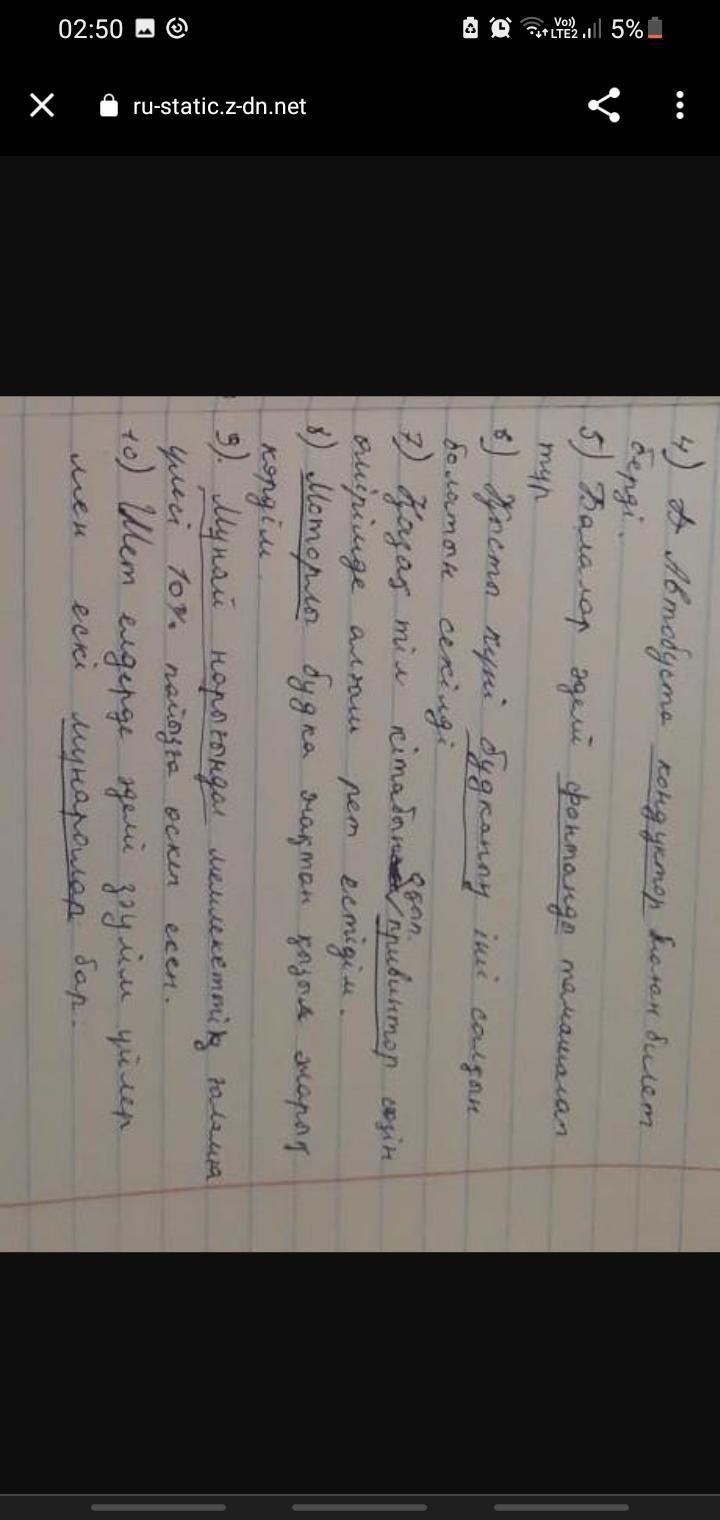 02:50
Vo))
LTE2
5%
ru-static.z-dn.net
4) Автобуста кондуктор билет
берді.
5) Балалар әдемі фонтанда тамашалап
тұр
6) Қыста күні будканың іші салқын
болатын секілді
7) Қазақ тіл кітабын привинтор сөзін
өмірімде алғаш рет естідім.
8) Моторлы будка жақтан қызыл жарық
көрдім.
9). Мұнай нарығында мемлекеттің ғаламша
үлесі 10% пайызға өскен екен.
10) Шет елдерде әдемі үйлер
мен ескі мұнаралар бар.